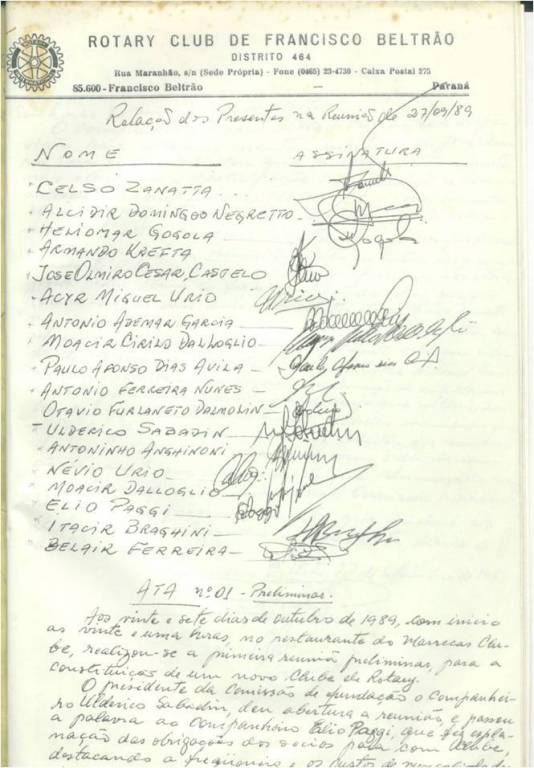 ROTARY CLUB DE FRANCISCO BELTRÃO
DISTRITO 464
Rua Maranhão, s/n (Sede Própria) - Fone (0465) 23-4730 - Caixa Postal 275
85.600 - Francisco Beltrão — Paraná
Relação dos Presentes na Reunião de 27/09/89
NOME ASSINATURA
CELSO ZANATTA
ALCIDIR DOMINGOO NEGRETTO
HELIOMAR GOGOLA
ARMANDO KREFTA
JOSE OLMIRO CESAR CASTELO
ACYR MIGUEL URIO
ANTONIO ADEMAR GARCIA
MOACIR CIRILO DALLOGLIO
PAULO AFONSO DIAS AVILA
ANTONIO FERREIRA NUNES
OTAVIO FURLANETO DALMOLIN
ULDERICO SABADIN
ANTONINHO ANGHINONI
NÉVIO URIO
MOACIR DALLOGLIO
ELIO PAGGI
ITACIR BRAGHINI
BELAIR FERREIRA
ATA nº 01 - Preliminar.
Aos vinte e sete dias de outubro de 1989, com inicio
as vinte e uma horas, no restaurante do Marrecas Clu-
be, realizou-se a primeira reunião preliminar, para a
constituição de um novo Clube de Rotary.
O presidente da comissão de fundação o companhei-
ro Ulderico Sabadin, deu abertura a reunião, e passou
a palavra ao companheiro Elio Paggi, que fez expla-
nação das obrigações dos socios para com Clube,
destacando a frequencia e os custos de mensalidade